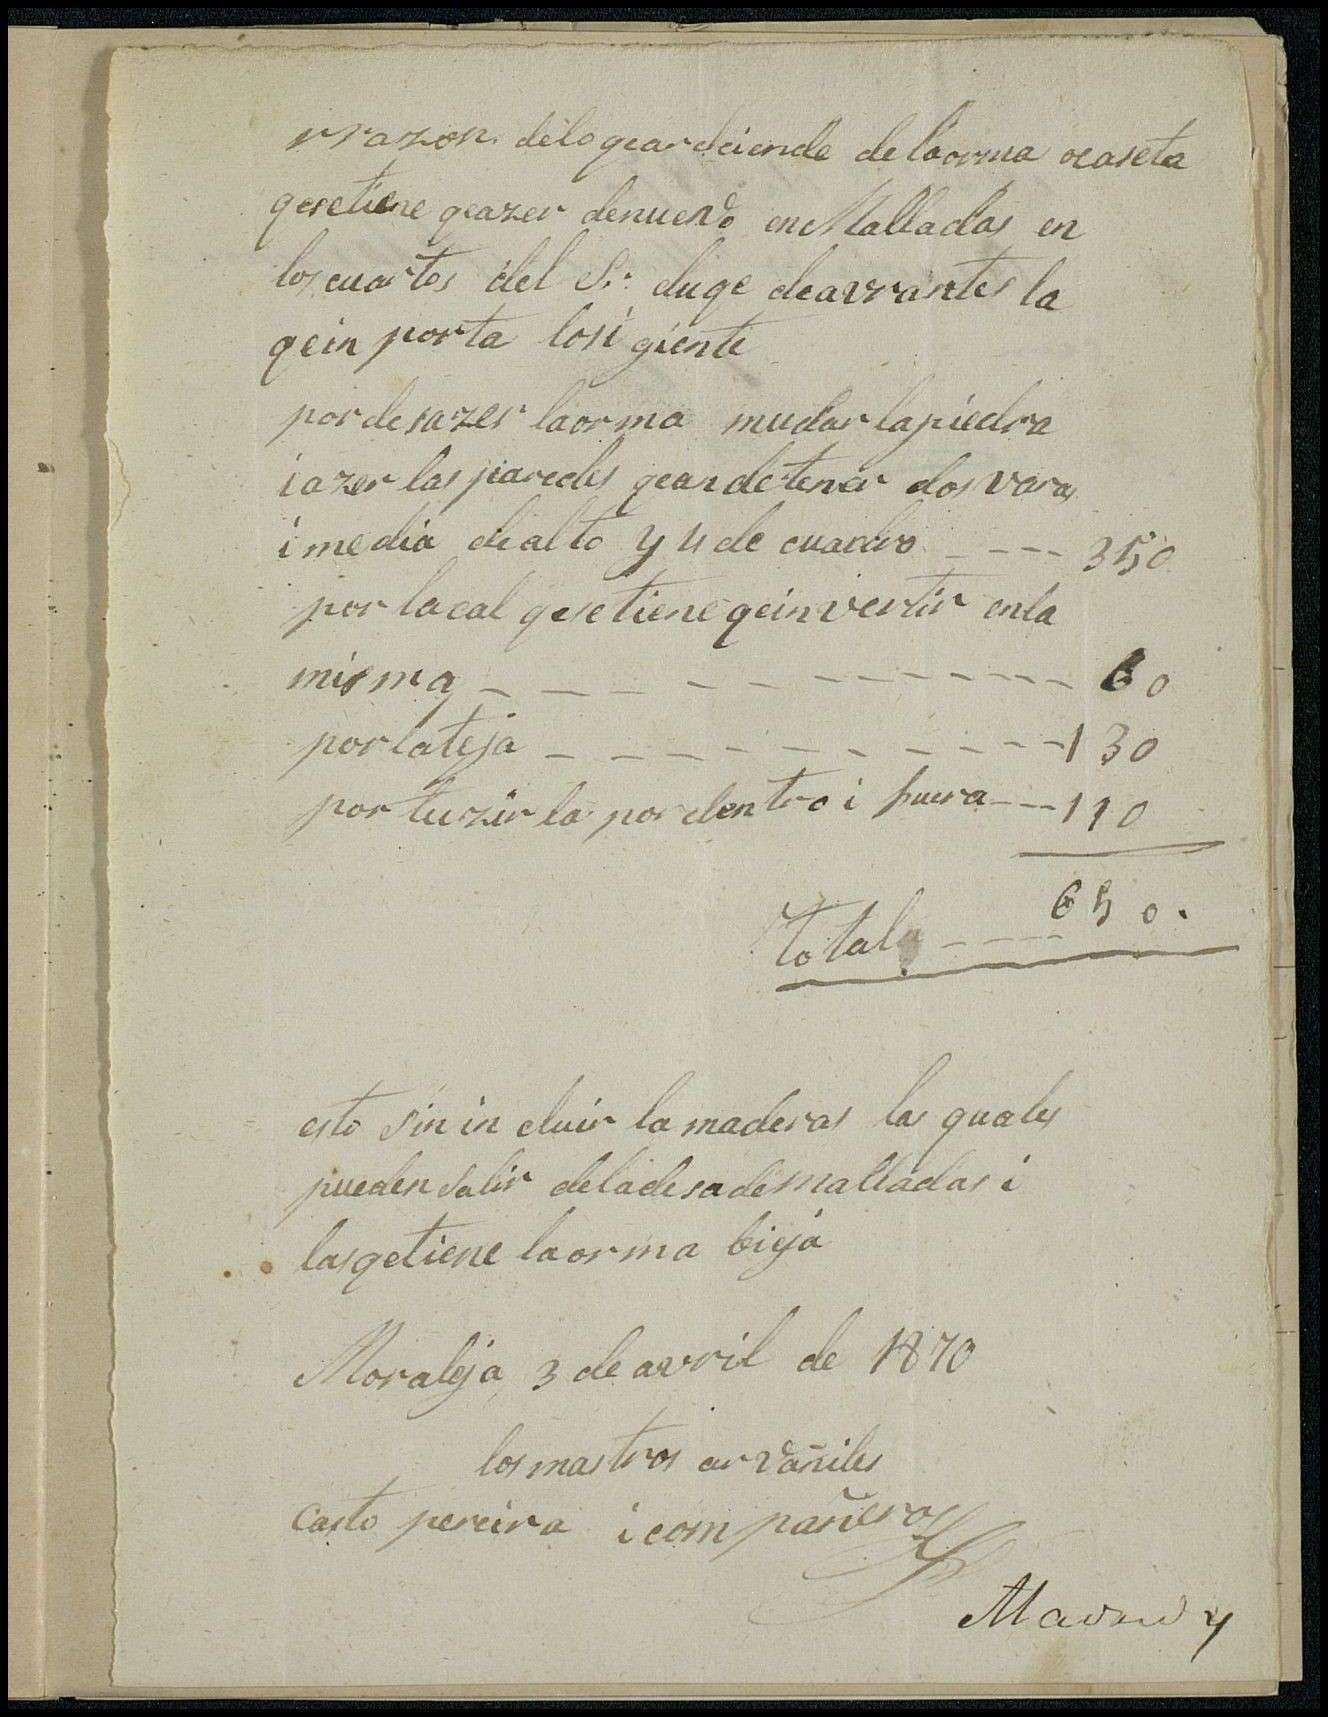 rrazon delo qear deciende de laorma ocaseta
qesetiene qeazer denuevo en Malladas en
los cuartos del Sr. duqe deavrantes la
qein porta losi giente
por desazer laorma mudar lapiedra
i azer las paredes qean detener dos varas
i media de alto y 4 de cuadro - - - - 350
por lacal qesetiene qein vertir enla
misma - - - - - - - - - - - - 60
por lateja - - - - - - - - - - 130
por luzirla por dentro i fuera - - - 110
total - - - - 650.
esto sin in cluir la maderas las quales
pueden salir deladesa de malladas i
las qetiene laorma bieja
Moraleja 3 de avril de 1870
los mastros arvañiles
Casto pereira i com pañeros